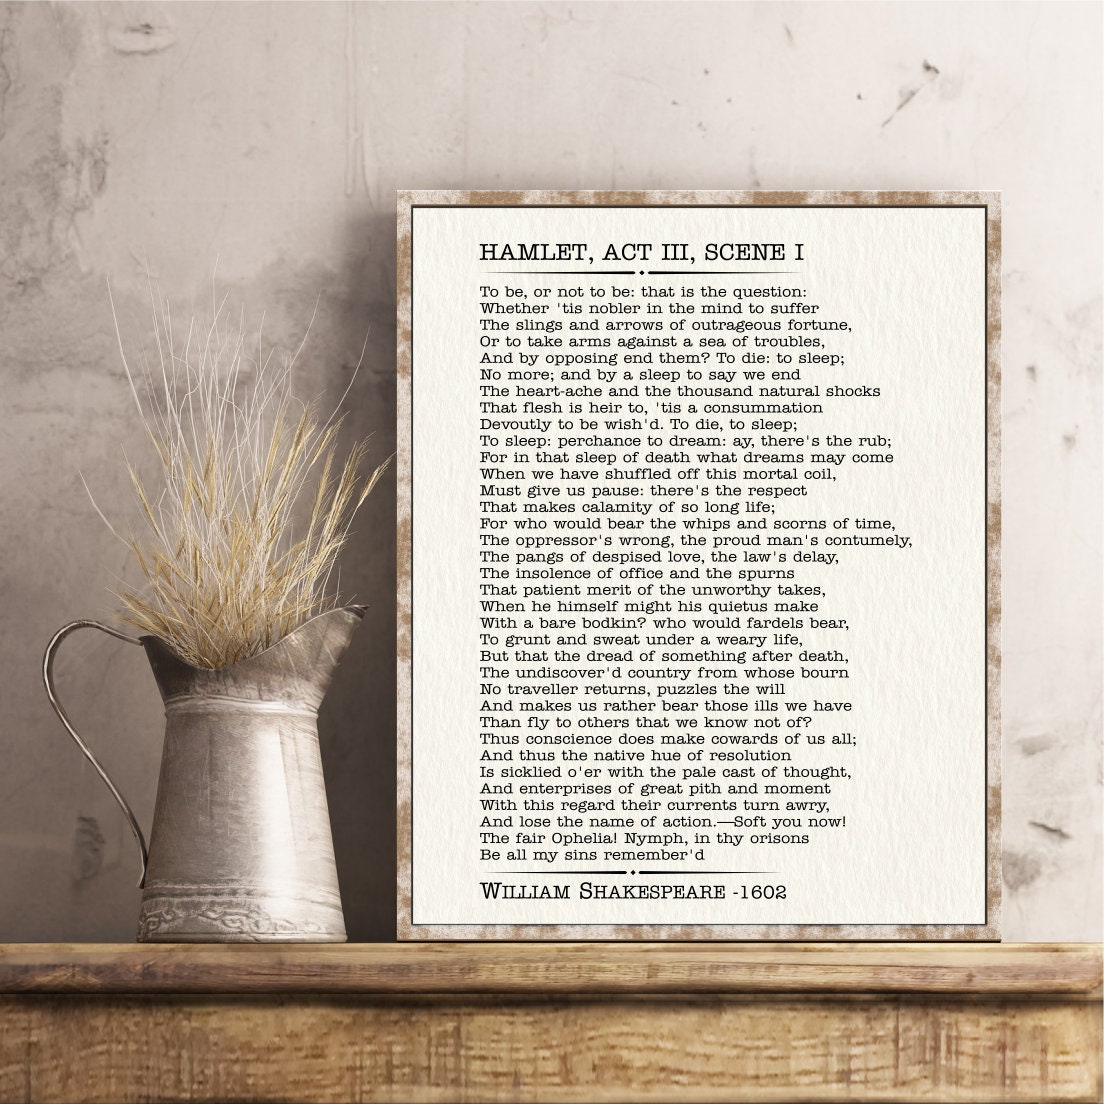 HAMLET, ACT III, SCENE I
To be, or not to be: that is the question:
Whether 'tis nobler in the mind to suffer
The slings and arrows of outrageous fortune,
Or to take arms against a sea of troubles,
And by opposing end them? To die: to sleep;
No more; and by a sleep to say we end
The heart-ache and the thousand natural shocks
That flesh is heir to, 'tis a consummation
Devoutly to be wish'd. To die, to sleep;
To sleep: perchance to dream: ay, there's the rub;
For in that sleep of death what dreams may come
When we have shuffled off this mortal coil,
Must give us pause: there's the respect
That makes calamity of so long life;
For who would bear the whips and scorns of time,
The oppressor's wrong, the proud man's contumely,
The pangs of despised love, the law's delay,
The insolence of office and the spurns
That patient merit of the unworthy takes,
When he himself might his quietus make
With a bare bodkin? who would fardels bear,
To grunt and sweat under a weary life,
But that the dread of something after death,
The undiscover'd country from whose bourn
No traveller returns, puzzles the will
And makes us rather bear those ills we have
Than fly to others that we know not of?
Thus conscience does make cowards of us all;
And thus the native hue of resolution
Is sicklied o'er with the pale cast of thought,
And enterprises of great pith and moment
With this regard their currents turn awry,
And lose the name of action.—Soft you now!
The fair Ophelia! Nymph, in thy orisons
Be all my sins remember'd
WILLIAM SHAKESPEARE -1602